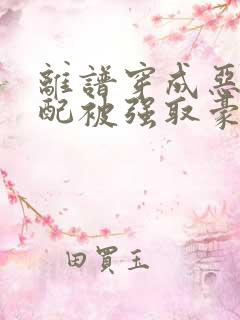 離譜穿成惡
配被强取豪
田買玉